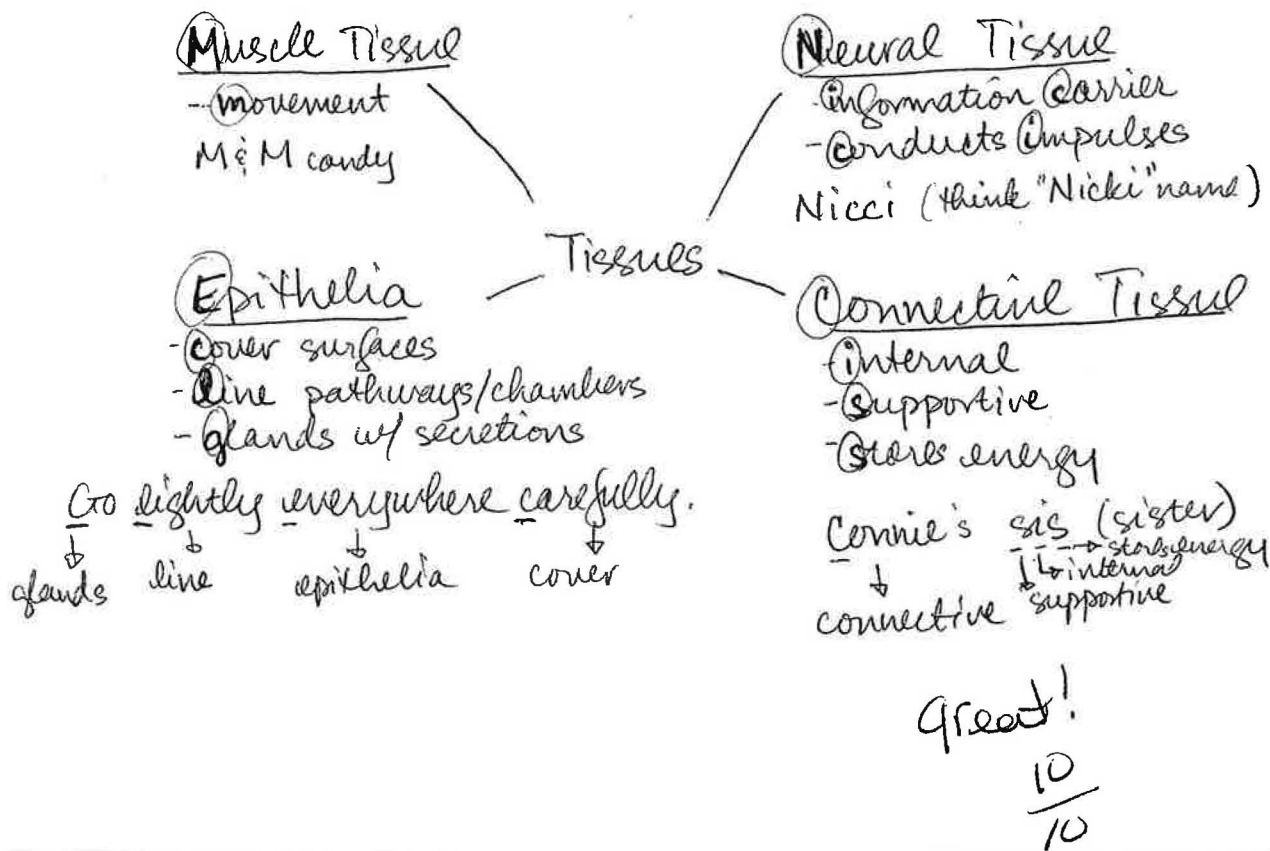 Muscle Tissue
- movement
M & M candy
Neural Tissue
- information carrier
- conducts impulses
Nicci (think "Nicki" name)
Tissues
Epithelia
- cover surfaces
- line pathways/chambers
- glands w/ secretions
Go lightly everywhere carefully.
glands line epithelia cover
Connective Tissue
- internal
- supportive
- stores energy
Connie's sis (sister)
stores energy
internal
connective supportive
Great!
10
10